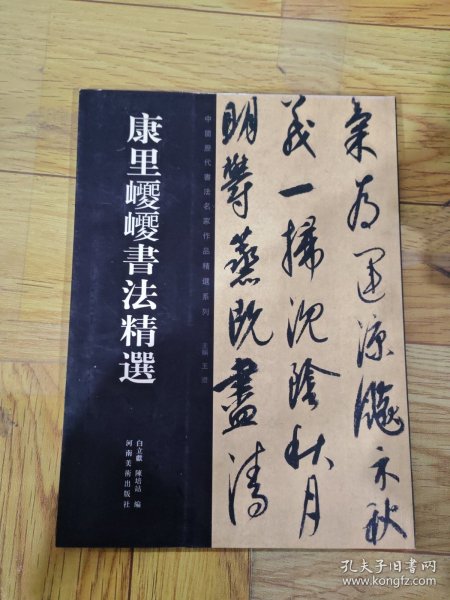 康里巎巎書法精選
中國歷代書法名家作品精選系列
主編 王澄
白立獻 陳培站 編
河南美術出版社
氣為涼飈示秋
一掃沉陰秋月
明鬱蒸既盡清
孔夫子旧书网
www.kongfz.com